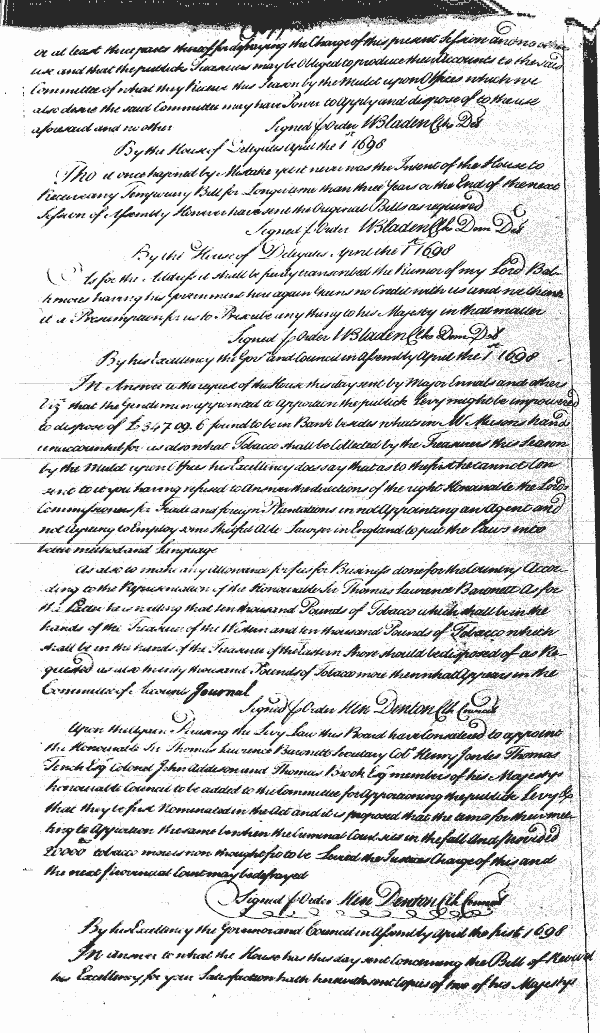 or at least three parts thereof for defraying the Charge of this present Session and no other
use and that the publick Treasurers may be Obliged to produce their Accounts to the said
Committee of what they Receive this Season by the Impost upon Offices which we
also desire the said Committee may have Power to Apply and dispose of to the use
aforesaid and no other Signed p Order W Bladen Clk Del
By the House of Delegates April the 1st 1698
Tho it once hapened by Mistake yet it never was the Intent of the House to
Receive any Temporary Bill for Longer time than three Years or the End of the next
Session of Assembly However have sent the Original Bills as required
Signed p Order W Bladen Clk Dom Del
By the House of Delegates April the 1st 1698
As for the Address it shall be fairly transcribed the Rumor of my Lord Bal-
timores having his Government here again Gains no Credit with us and we think
it a Presumption for us to Prescribe any thing to his Majesty in that matter
Signed p Order W Bladen Clk Dom Del
By his Excellency the Govr and Council in Assembly April the 1st 1698
In Answer to the request of the House this day sent by Major Ennals and others
Vizt that the Gentlemen appointed to Apportion the publick Levy might be impowered
to dispose of £347.09.6 found to be in Bank besides what is in Mr Masons hands
unaccounted for as also what Tobacco shall be Collected by the Treasurers this Season
by the upon Offices his Excellency does say that as to the first he cannot Con
sent to it you having refused to Answer the directions of the right Honourable the Lords
Commissioners for Trade and foreign Plantations in not Appointing an Agent and
not Agreeing to Employ some skilful Able Lawyer in England to put the Laws into
better method and Language
As also to make any allowance for fees for Business done for the Country Accor-
ding to the Representation of the Honourable Sr Thomas Laurence Baronett As for
the Latter he is willing that ten thousand Pounds of Tobacco which shall be in the
hands of the Treasurer of the Western and ten thousand Pounds of Tobacco which
shall be in the hands of the Treasurer of the Eastern Shore should be disposed of as Re-
quested as also twenty thousand Pounds of Tobacco more then what Appears in the
Committee of Accounts Journal
Signed p Order Hen Denton Clk Council
Upon the Again Perusing the Levy Law this Board have considered to appoint
the Honourable Sr Thomas Laurence Baronett Secretary Coll Henry Jowles Thomas
Tench Esqr Colonel John Addison and Thomas Brook Esqr members of his Majestys
honourable Council to be added to the Committee for Apportioning the publick Levy &
that they be first Nominated in the Act and it is proposed that the time for their mee-
ting to Apportion the same be when the Criminal Court sits in the fall And Provided
20000 tobacco more is now thought fit to be Leved the Justices Charge of this and
the next Provincial Court may be defrayed
Signed p Order Hen Denton Clk Council
By his Excellency the Governor and Council in Assembly April the first 1698
In answer to what the House has this day sent Concerning the Bill of
his Excellency for your Satisfaction hath herewith sent Copies of two of his Majestys